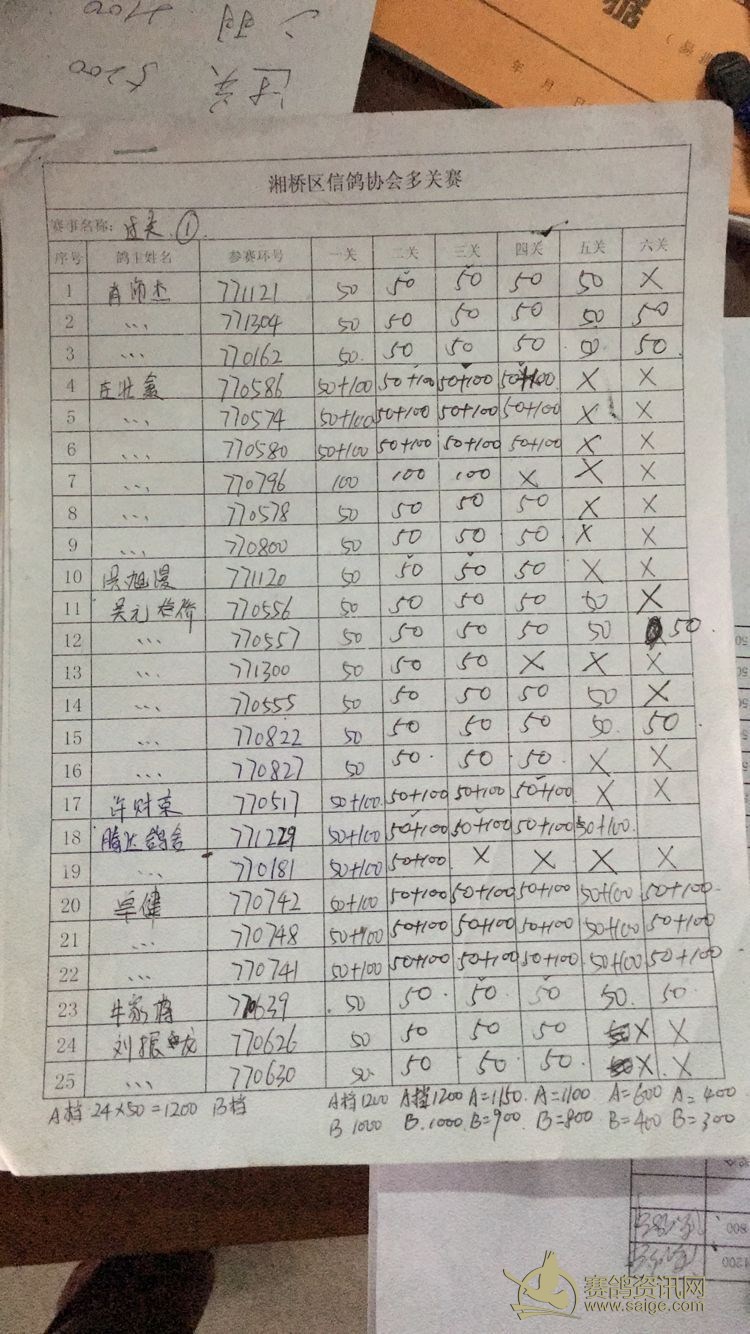 据
年 月 日
湘桥区信鸽协会多关赛
赛事名称: 过关 ①
序号 鸽主姓名 参赛环号 一关 二关 三关 四关 五关 六关
1 771121 50 50 50 50 50 X
2 、、、 771304 50 50 50 50 50 50
3 、、、 770162 50 50 50 50 50 50
4 庄壮鑫 770586 50+100 50+100 50+100 50+100 X X
5 、、、 770574 50+100 50+100 50+100 50+100 X X
6 、、、 770580 50+100 50+100 50+100 50+100 X X
7 、、、 770796 100 100 100 X X X
8 、、、 770578 50 50 50 50 X X
9 、、、 770800 50 50 50 50 X X
10 吴旭漫 771120 50 50 50 50 X X
11 吴元 770556 50 50 50 50 50 X
12 、、、 770557 50 50 50 50 50 50
13 、、、 771300 50 50 50 X X X
14 、、、 770555 50 50 50 50 50 X
15 、、、 770822 50 50 50 50 50 50
16 、、、 770827 50 50 50 50 X X
17 许财荣 770517 50+100 50+100 50+100 50+100 X X
18 腾达鸽舍 771229 50+100 50+100 50+100 50+100 50+100
19 、、、 770181 50+100 50+100 X X X X
20 卓健 770742 50+100 50+100 50+100 50+100 50+100 50+100
21 、、、 770748 50+100 50+100 50+100 50+100 50+100 50+100
22 、、、 770741 50+100 50+100 50+100 50+100 50+100 50+100
23 770639 50 50 50 50 50 50
24 刘振龙 770626 50 50 50 50 X X
25 、、、 770630 50 50 50 50 X X
A档 24×50=1200 B档 A档1200 A档1200 A=1150 A=1100 A=600 A=400
B 1000 B.1000 B=900 B=800 B=400 B=300
800
1200
赛鸽资讯网
www.saige.com